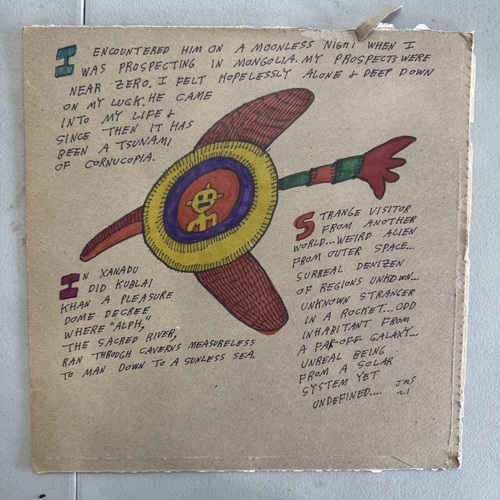 I ENCOUNTERED HIM ON A MOONLESS NIGHT WHEN I
WAS PROSPECTING IN MONGOLIA. MY PROSPECTS WERE
NEAR ZERO. I FELT HOPELESSLY ALONE & DEEP DOWN
ON MY LUCK. HE CAME
INTO MY LIFE &
SINCE THEN IT HAS
BEEN A TSUNAMI
OF CORNUCOPIA.
IN XANADU
DID KUBLAI
KHAN A PLEASURE
DOME DECREE
WHERE "ALPH,"
THE SACRED RIVER,
RAN THROUGH CAVERNS MEASURELESS
TO MAN DOWN TO A SUNLESS SEA.
STRANGE VISITOR
FROM ANOTHER
WORLD...WEIRD ALIEN
FROM OUTER SPACE...
SURREAL DENIZEN
OF REGIONS UNKOWN...
UNKNOWN STRANGER
IN A ROCKET...ODD
INHABITANT FROM
A FAR-OFF GALAXY...
UNREAL BEING
FROM A SOLAR
SYSTEM YET
UNDEFINED....
JMS
21